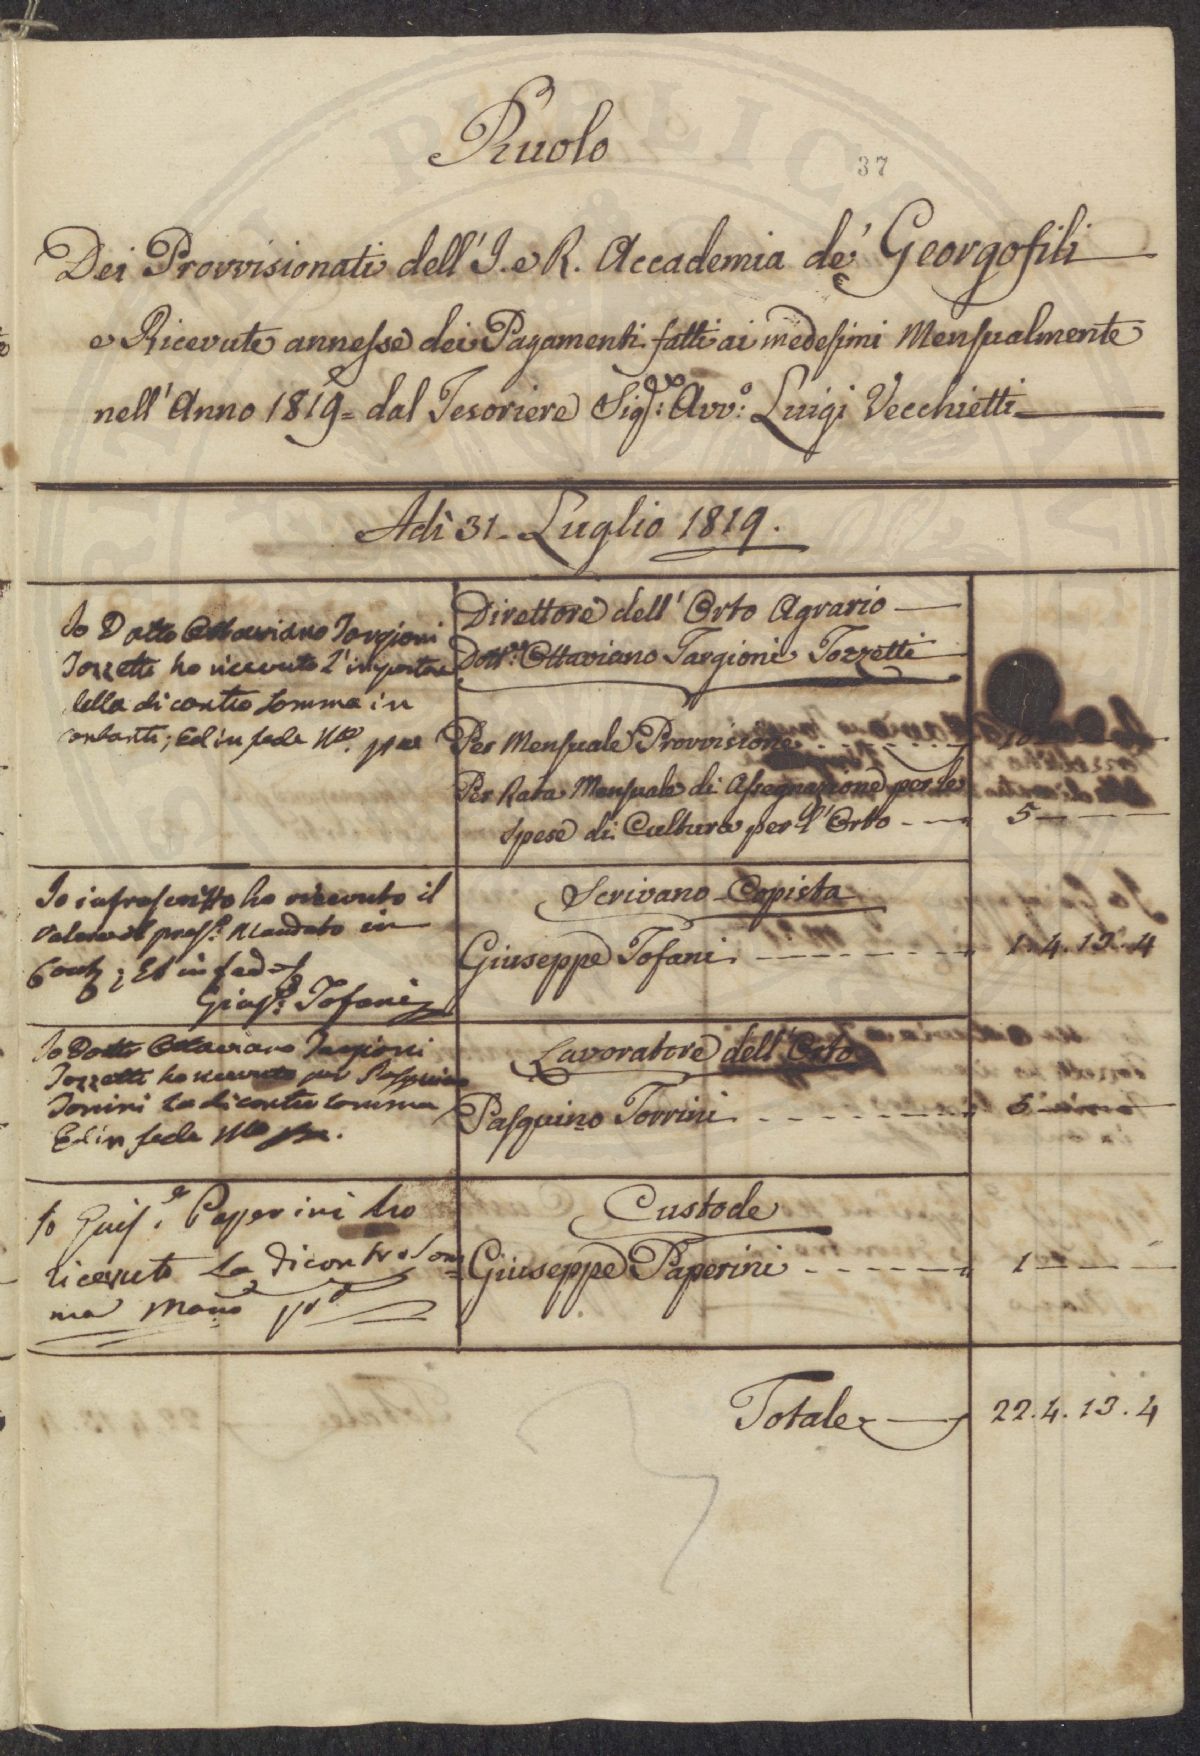 Ruolo
37
Dei Provvisionati dell' I. e R. Accademia de' Georgofili
e Ricevute annesse dei Pagamenti fatti ai medesimi Mensualmente
nell' Anno 1819= dal Tesoriere Sig.re Avv.o Luigi Vecchietti
Adì 31. Luglio 1819.
Io Dotto Ottaviano Targioni
Tozzetti ho ricevuto l'importare
della di contro somma in
contanti; Ed in fede
Direttore dell' Orto Agrario
Dott.re Ottaviano Targioni Tozzetti
Per Mensuale Provvisione 10
Per Rata Mensuale di Assegnazione per le
spese di Cultura per l' Orto 5
Io infrascritto ho ricevuto il
valore del pres.e Mandato in
Cont; Ed in fede
Gius.e Tofani
Scrivano Copista
Giuseppe Tofani 1. 4. 13. 4
Io Dotto Ottaviano Targioni
Tozzetti ho ricevuto per Pasquino
Torrini la di contro somma
Ed in fede
Lavoratore dell' Orto
Pasquino Torrini 5
Io Guis.e Paperini ho
ricevuto la dicontro som
ma Mano pp.a
Custode
Giuseppe Paperini 1
Totale 22. 4. 13. 4